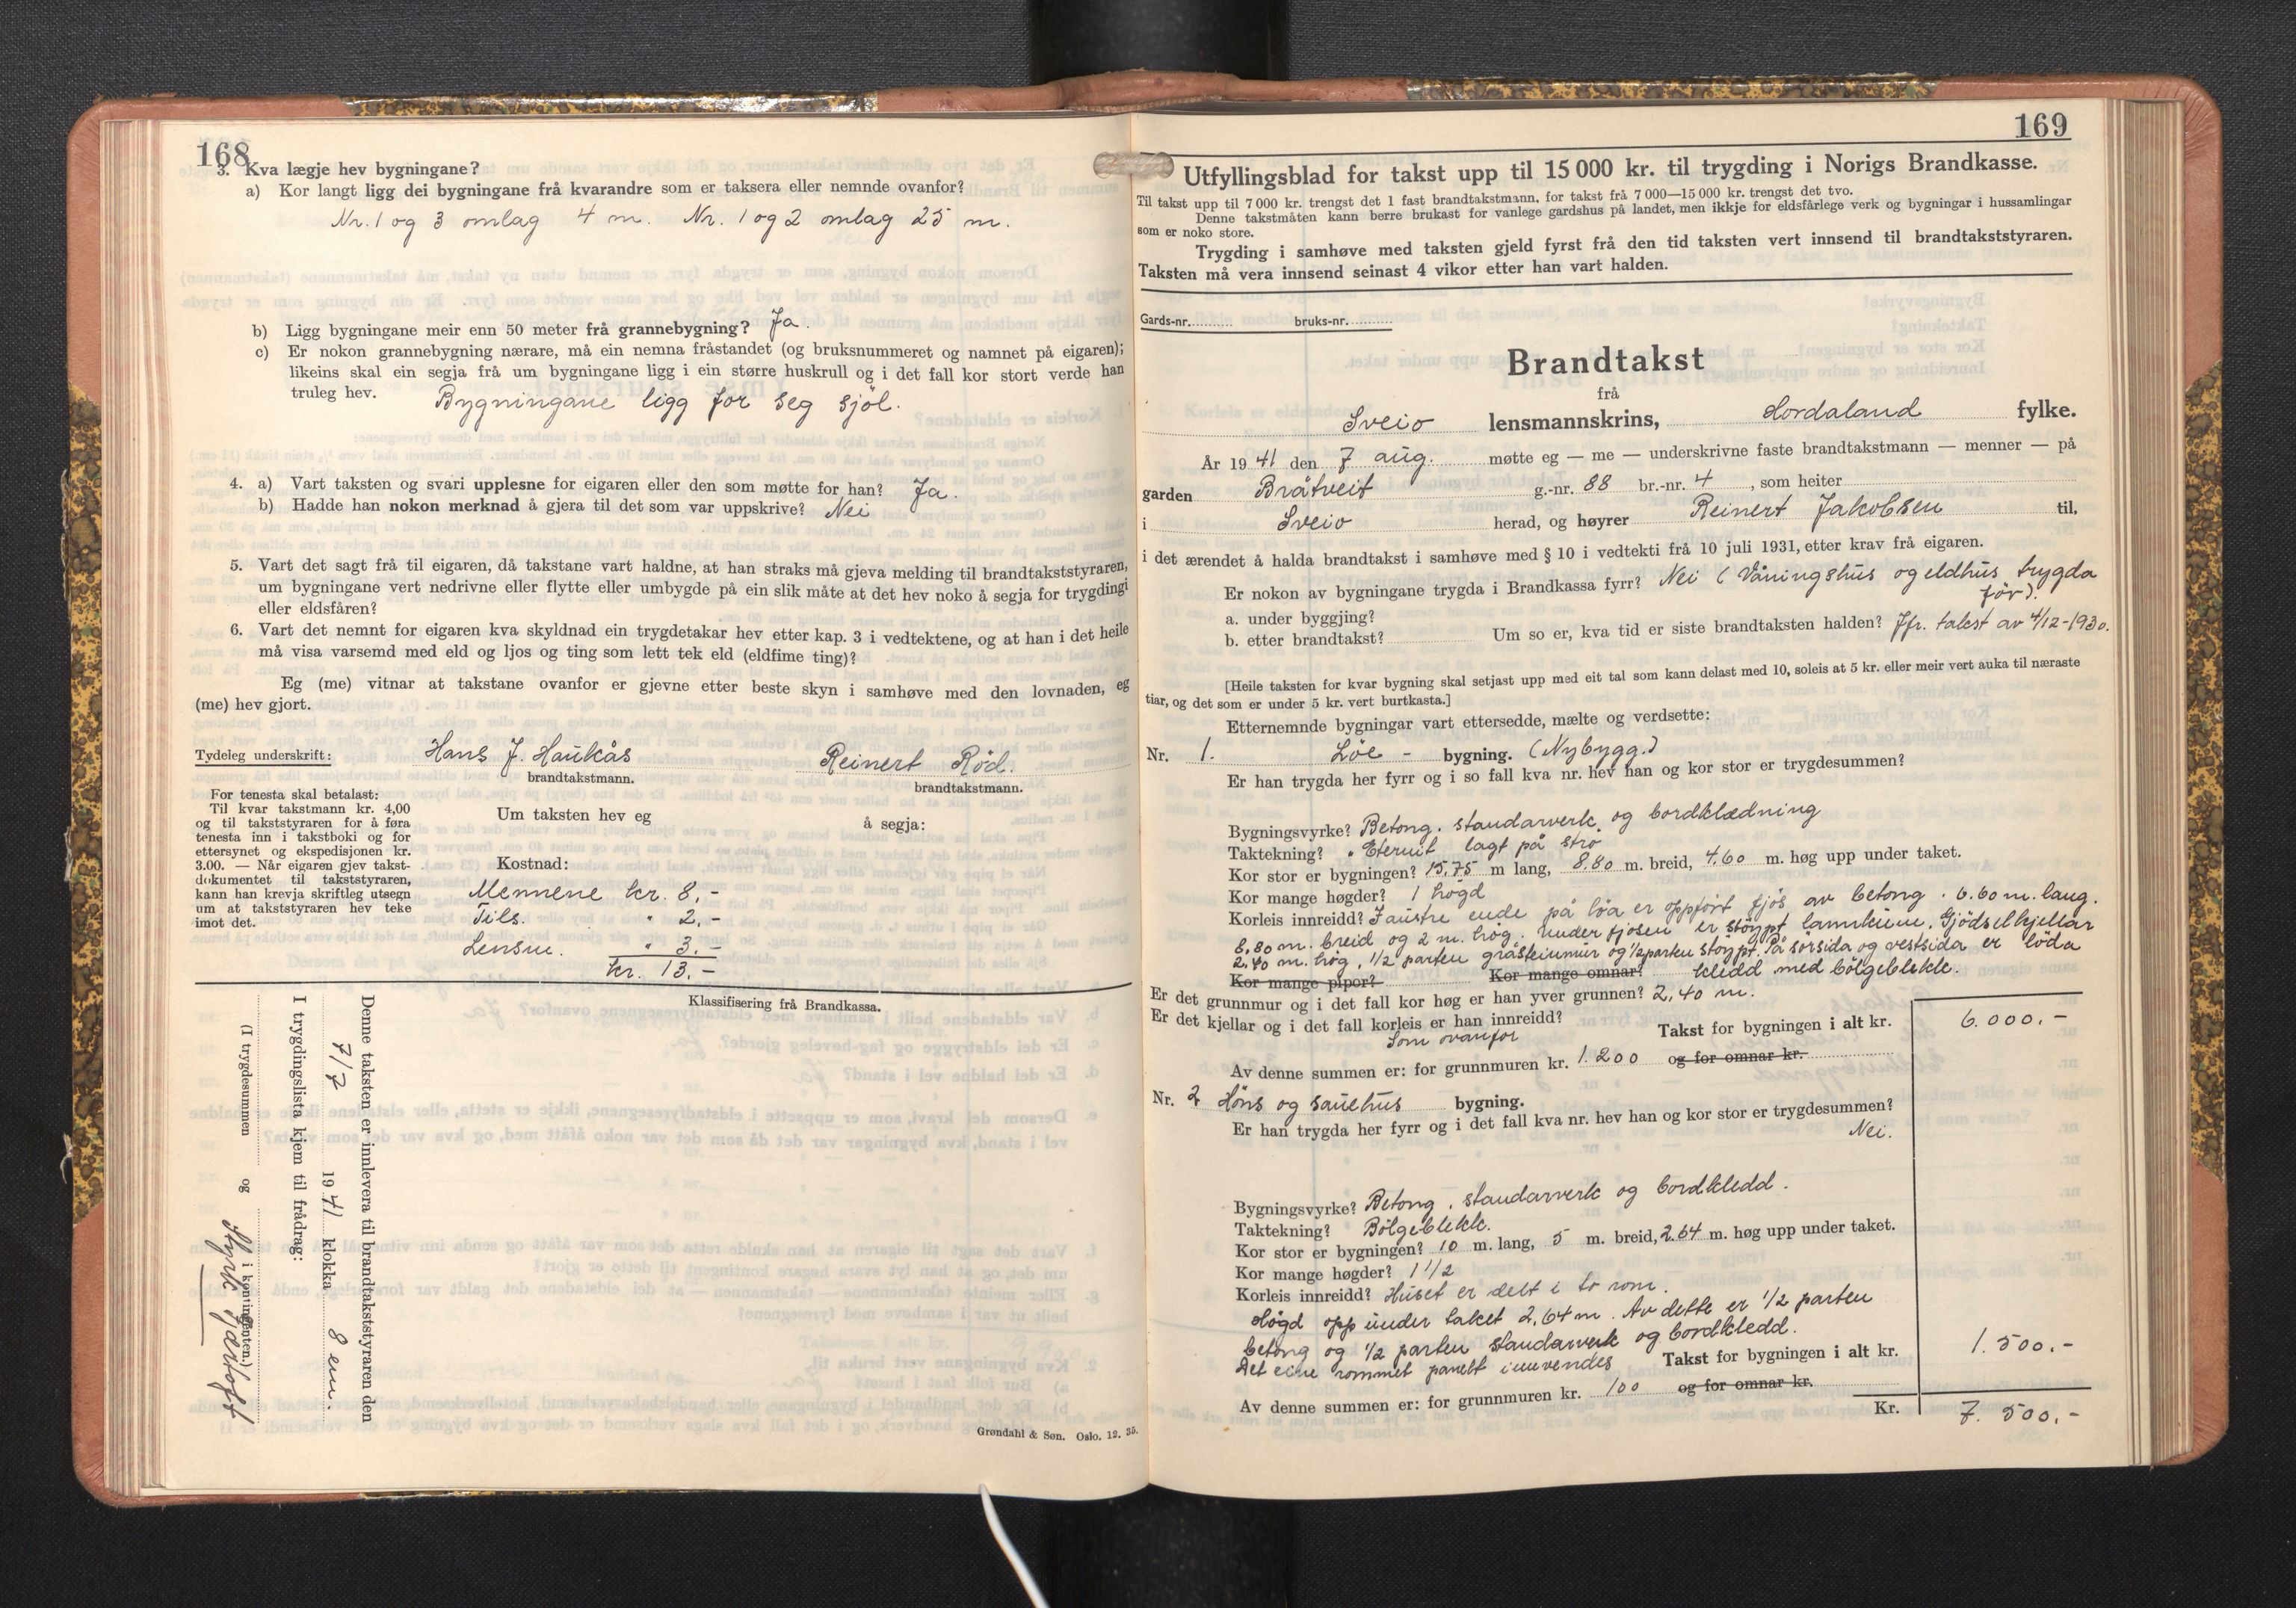 168
3. Kva lægje hev bygningane?
a) Kor langt ligg dei bygningane frå kvarandre som er taksera eller nemnde ovanfor?
Nr. 1 og 3 omlag 4 m. Nr. 1 og 2 omlag 25 m.
b) Ligg bygningane meir enn 50 meter frå grannebygning? Ja.
c) Er nokon grannebygning nærare, må ein nemna fråstandet (og bruksnummeret og namnet på eigaren);
likeins skal ein segja frå um bygningane ligg i ein større huskrull og i det fall kor stort verde han
truleg hev. Bygningane ligg for seg sjöl.
4. a) Vart taksten og svari upplesne for eigaren eller den som møtte for han? Ja.
b) Hadde han nokon merknad å gjera til det som var uppskrive? Nei
5. Vart det sagt frå til eigaren, då takstane vart haldne, at han straks må gjeva melding til brandtakststyraren,
um bygningane vert nedrivne eller flytte eller umbygde på ein slik måte at det hev noko å segja for trygdingi
eller eldsfåren?
6. Vart det nemnt for eigaren kva skyldnad ein trygdetakar hev etter kap. 3 i vedtektene, og at han i det heile
må visa varsemd med eld og ljos og ting som lett tek eld (eldfime ting)?
Eg (me) vitnar at takstane ovanfor er gjevne etter beste skyn i samhøve med den lovnaden, eg
(me) hev gjort.
Tydeleg underskrift: Hans J. Haukås Reinert Röd.
brandtakstmann. brandtakstmann.
For tenesta skal betalast:
Til kvar takstmann kr. 4,00
og til takststyraren for å føra
tenesta inn i takstboki og for
ettersynet og ekspedisjonen kr.
3.00. — Når eigaren gjev takst-
dokumentet til takststyraren,
kann han krevja skriftleg utsegn
um at takststyraren hev teke
imot det.
Um taksten hev eg å segja:
Kostnad:
Mennene kr. 8,-
Tils. " 2,-
Lensm. " 3.-
kr. 13,-
Klassifisering frå Brandkassa.
Denne taksten er innlevera til brandtakststyraren den
7/7 1941 klokka 8 em.
I trygdingslista kjem til frådrag:
(I trygdesummen og i kontingenten.)
Grøndahl & Søn. Oslo. 12. 35.
169
Utfyllingsblad for takst upp til 15 000 kr. til trygding i Norigs Brandkasse.
Til takst upp til 7 000 kr. trengst det 1 fast brandtakstmann, for takst frå 7 000—15 000 kr. trengst det tvo.
Denne takstmåten kann berre brukast for vanlege gardshus på landet, men ikkje for eldsfårlege verk og bygningar i hussamlingar
som er noko store.
Trygding i samhøve med taksten gjeld fyrst frå den tid taksten vert innsend til brandtakststyraren.
Taksten må vera innsend seinast 4 vikor etter han vart halden.
Gards-nr. bruks-nr.
Brandtakst
frå
Sveio lensmannskrins, Hordaland fylke.
År 1941 den 7 aug. møtte eg — me — underskrivne faste brandtakstmann — menner — på
garden Bråtveit g.-nr. 88 br.-nr. 4, som heiter
i Sveio herad, og høyrer Reinert Jakobsen til,
i det ærendet å halda brandtakst i samhøve med § 10 i vedtekti frå 10 juli 1931, etter krav frå eigaren.
Er nokon av bygningane trygda i Brandkassa fyrr? Nei (Våningshus og eldhus trygda
för).
a. under byggjing?
b. etter brandtakst? Um so er, kva tid er siste brandtaksten halden? Jfr. takst av 4/12-1930.
[Heile taksten for kvar bygning skal setjast upp med eit tal som kann delast med 10, soleis at 5 kr. eller meir vert auka til næraste
tiar, og det som er under 5 kr. vert burtkasta.]
Etternemnde bygningar vart ettersedde, mælte og verdsette:
Nr. 1. Löe - bygning. (Nybygg.)
Er han trygda her fyrr og i so fall kva nr. hev han og kor stor er trygdesummen?
Bygningsvyrke? Betong. standarverk og bordklædning
Taktekning? Eternit lagt på stro
Kor stor er bygningen? 15,75 m lang, 8,80 m. breid, 4,60 m. høg upp under taket.
Kor mange høgder? 1 högd
Korleis innreidd? I austre ende på löa er oppfört fjös av betong. 6.60 m. lang.
8,80 m. breid og 2 m. hög. Under fjosen er stöypt landkjenn. Gjödselkjellar
2,40 m. hög, 1/2 parten gråsteinmur og 1/2 parten stöypt. På sörsida og vestsida er löda
Kor mange pipor? Kor mange omnar? kledd med bölgeblekk.
Er det grunnmur og i det fall kor høg er han yver grunnen? 2,40 m.
Er det kjellar og i det fall korleis er han innreidd? Takst for bygningen i alt kr. 6.000.-
Som ovanfor
Av denne summen er: for grunnmuren kr. 1.200 og for omnar kr.
Nr. 2 Höns og sauehus bygning.
Er han trygda her fyrr og i det fall kva nr. hev han og kor stor er trygdesummen?
Nei.
Bygningsvyrke? Betong. standarverk og bordkledd.
Taktekning? Bölgeblekk.
Kor stor er bygningen? 10 m. lang, 5 m. breid, 2.64 m. høg upp under taket.
Kor mange høgder? 1 1/2
Korleis innreidd? Huset er delt i to rom.
Högd opp under taket 2,64 m. Av dette er 1/2 parten
betong og 1/2 parten standarverk og bordkledd.
Det eine rommet panelt innvendes Takst for bygningen i alt kr. 1.500.-
Av denne summen er: for grunnmuren kr. 100 og for omnar kr.
Kr. 7.500.-